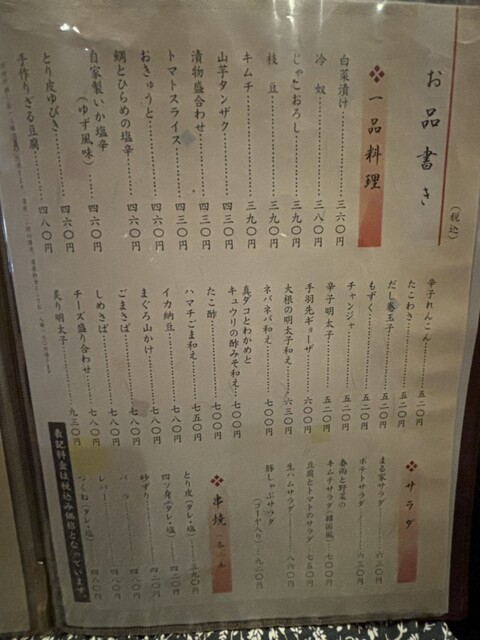 お品書き
(税込)
一品料理
白菜漬け 三六〇円
冷奴 三八〇円
じゃこおろし 三九〇円
枝豆 三九〇円
キムチ 三九〇円
山芋タンザク 四三〇円
漬物盛合わせ 四三〇円
トマトスライス 四三〇円
おきゅうと 四六〇円
鯛とひらめの塩辛 四六〇円
自家製いか塩辛
(ゆず風味) 四六〇円
とり皮ゆびき 四六〇円
手作りざる豆腐 四八〇円
辛子れんこん 五二〇円
たこわさ 五二〇円
だし巻玉子 五二〇円
もずく 五二〇円
チャンジャ 五二〇円
辛子明太子 五二〇円
手羽先ギョーザ 六〇〇円
大根の明太子和え 六三〇円
ネバネバ和え 七〇〇円
真ダコとわかめと
キュウリの酢みそ和え 七〇〇円
たこ酢 七〇〇円
ハマチごま和え 七五〇円
イカ納豆 七八〇円
まぐろ山かけ 七八〇円
ごまさば 七八〇円
しめさば 七八〇円
チーズ盛り合わせ 七八〇円
炙り明太子 九三〇円
サラダ
まる家サラダ 六三〇円
ポテトサラダ 六三〇円
春雨と野菜の
キムチサラダ(韓国風) 七〇〇円
豆腐とトマトのサラダ 七五〇円
生ハムサラダ 八六〇円
豚しゃぶサラダ
(ゴーヤ入り) 九二〇円
串焼
とり皮(タレ・塩) 三九〇円
四ツ身(タレ・塩) 四二〇円
砂ずり 四二〇円
バラ 四八〇円
レバー 四八〇円
つくね(タレ・塩) 四八〇円
表記料金は税込み価格となっています。